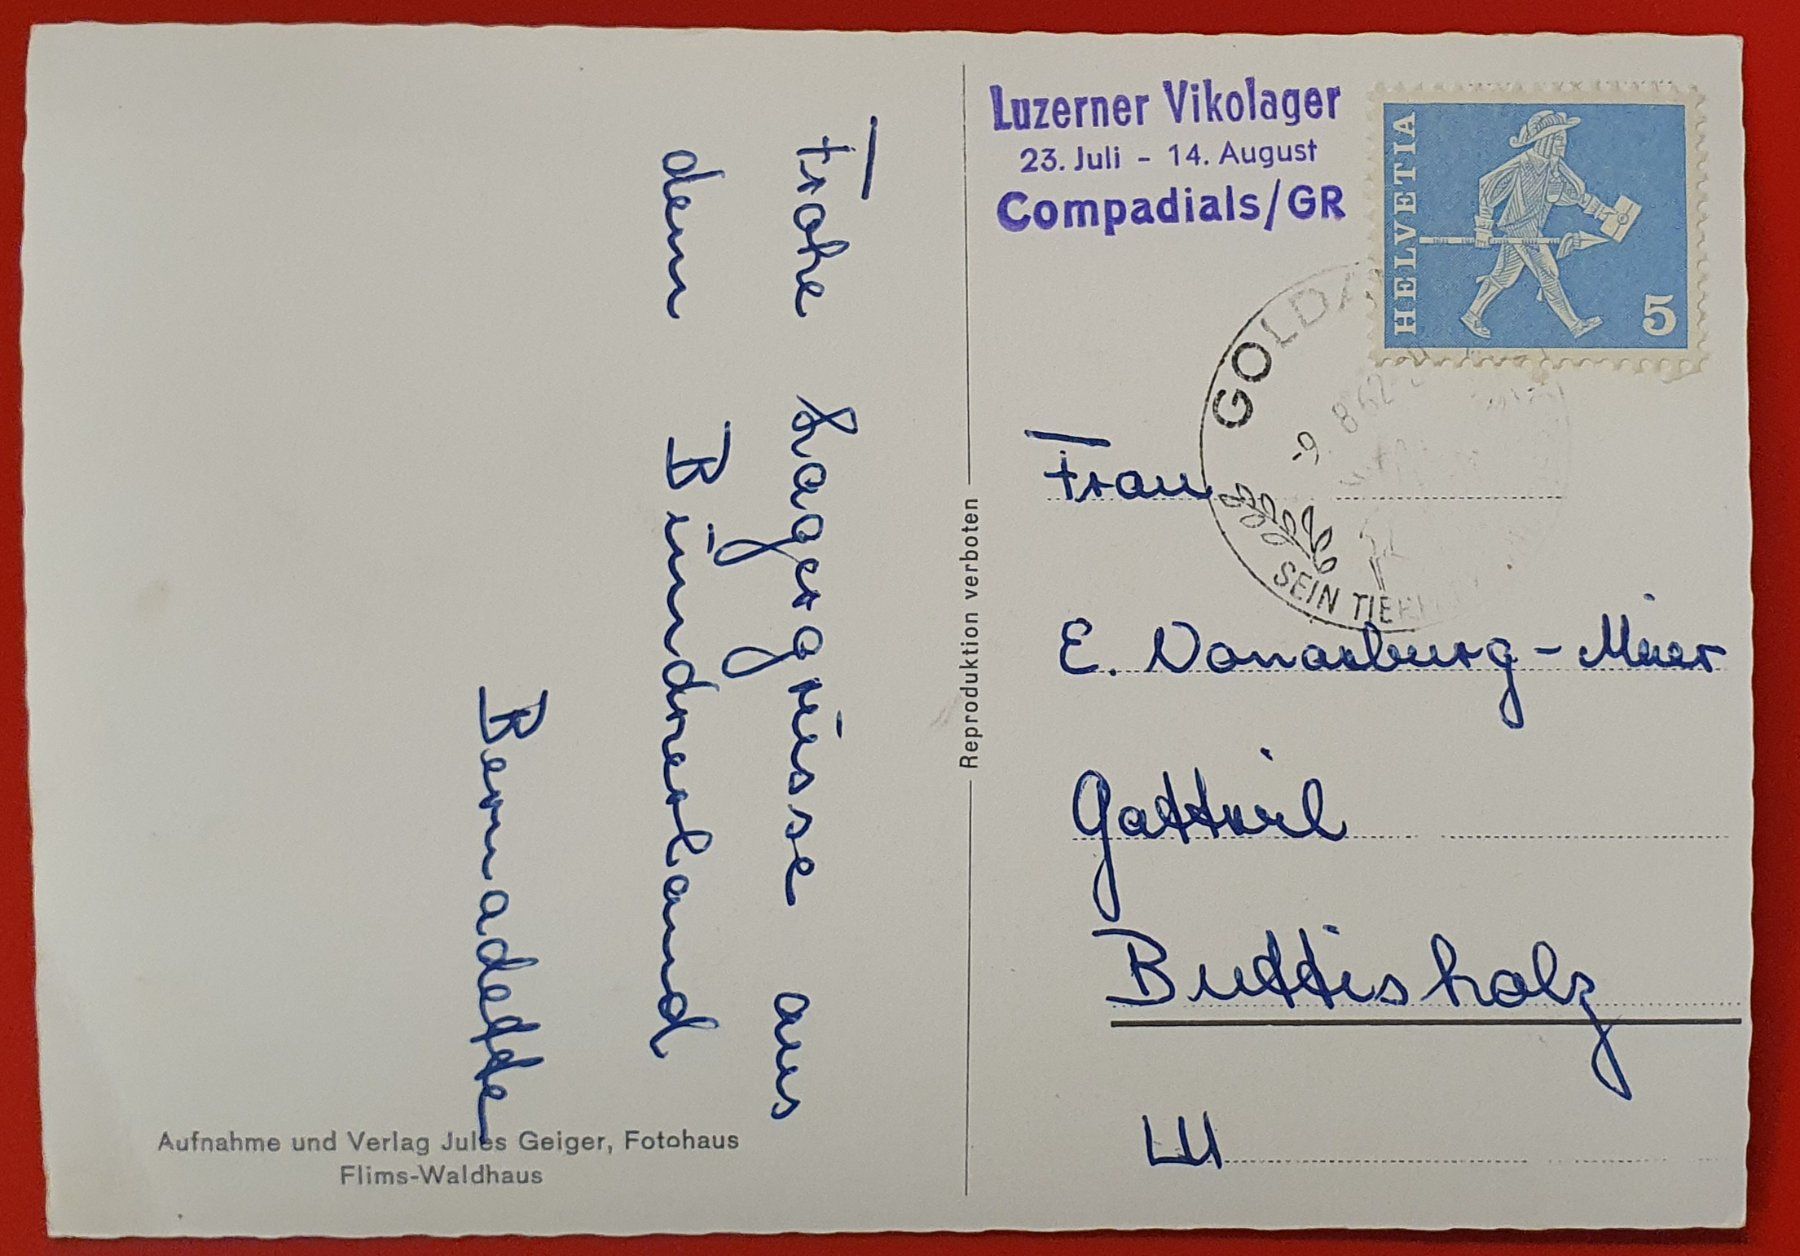 Frohe Lagergrüsse aus
dem Bündnerland
Bernadette
Aufnahme und Verlag Jules Geiger, Fotohaus
Flims-Waldhaus
Reproduktion verboten
Luzerner Vikolager
23. Juli - 14. August
Compadials/GR
HELVETIA
5
-9. 8 62
SEIN
Frau
E. Vonarburg-Meier
Gattwil
Buttisholz
LU